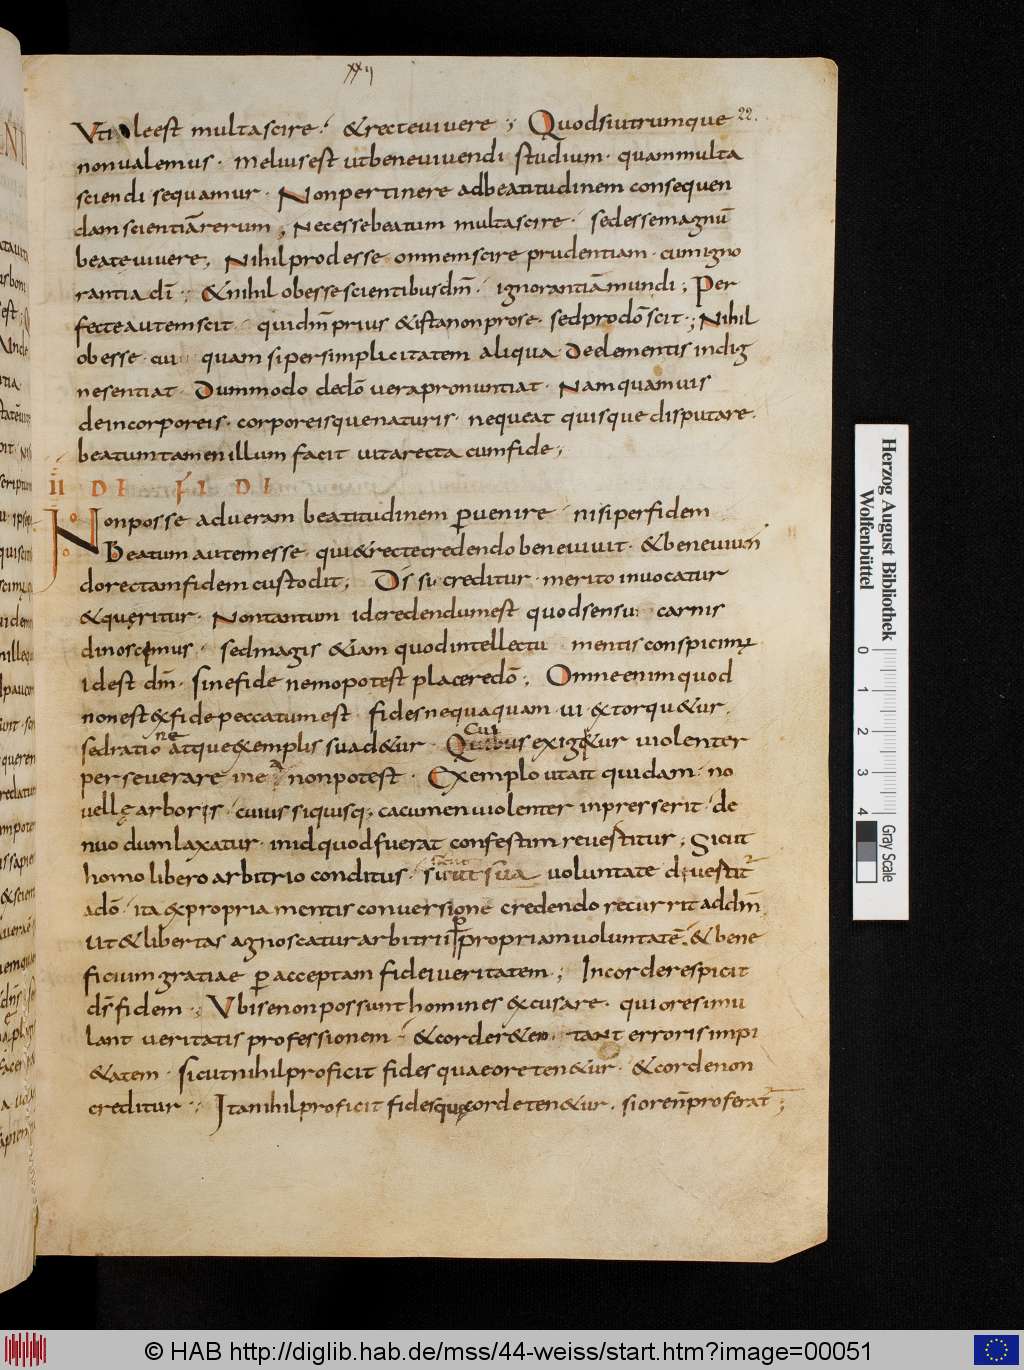 xxij
22.
Utile est multa scire. & recte vivere; Quod si utrumque
non valemus. melius est ut bene vivendi studium. quam multa
sciendi sequamur. Non pertinere ad beatitudinem consequen
dam scientiā rerum; Necesse beatum multa scire. sed esse magnū
beate vivere; Nihil prodesse omnem scire prudentiam. cum igno
rantia dī; & nihil obesse scientibus dm̄. ignorantiā mundi; Per
fecte autem scit. qui dm̄ prius & ista non pro se. sed pro dō scit; Nihil
obesse cui quam si per simplicitatem aliqua de elementis indig
ne sentiat. Dummodo de dō vera pronuntiat. Nam quamvis
de incorporeis. corporeisque naturis. nequeat quisque disputare.
beatum tamen illum facit vita recta cum fide;
II DE FIDE
Non posse ad veram beatitudinem ꝑvenire. nisi per fidem
Beatum autem esse. qui & recte credendo bene vivit. & bene viven
do rectam fidem custodit; Dī si creditur. merito invocatur
& queritur. Non tantum id credendum est quod sensu carnis
dinoscimus. sed magis &iam quod intellectu mentis conspicimꝰ
id est dm̄. sine fide nemo potest placere dō; Omne enim quod
non est ex fide peccatum est. fides nequaquam vi extorqu&ur.
ne
sed ratio atque exemplis suad&ur. Quibus exig&ur violenter
cui
perseverare in ea non potest. Exemplo ut ait quidam. no
velle arboris. cuius si quisq; cacumen violenter inpresserit. de
nuo dum laxatur. in id quod fuerat confestim revestitur; Sicut
homo libero arbitrio conditus. sicut sua voluntate divestit̄
a dō. ita ex propria mentis conversione credendo recurrit ad dm̄.
Ut & libertas agnoscatur arbitrii ꝑ propriam voluntatē. & bene
ficium gratiae ꝑ acceptam fidei veritatem; In corde respicit
ds̄ fidem; Ubi se non possunt homines excusare. qui ore simu
lant veritatis professionem. & corde r&en tant erroris impi
&atem. sicut nihil proficit fides quae ore ten&ur. & corde non
creditur; Ita nihil proficit fides quę corde ten&ur. si ore n̄ proferat̄;
Herzog August Bibliothek
Wolfenbüttel
0 1 2 3 4
Gray Scale
© HAB http://diglib.hab.de/mss/44-weiss/start.htm?image=00051